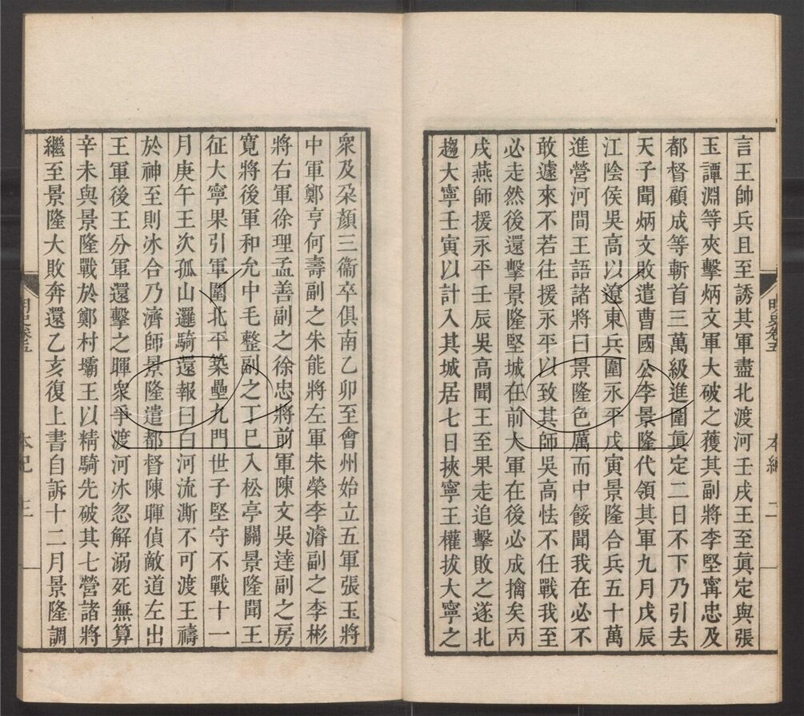 言王帥兵且至誘其軍盡北渡河壬戌王至眞定與張
玉譚淵等夾擊炳文軍大破之獲其副將李堅甯忠及
都督顧成等斬首三萬級進圍眞定二日不下乃引去
天子聞炳文敗遣曹國公李景隆代領其軍九月戊辰
江陰侯吳高以遼東兵圍永平戊寅景隆合兵五十萬
進營河間王語諸將曰景隆色厲而中餒聞我在必不
敢遽來不若往援永平以致其師吳高怯不任戰我至
必走然後還擊景隆堅城在前大軍在後必成擒矣丙
戌燕師援永平壬辰吳高聞王至果走追擊敗之遂北
趨大寧壬寅以計入其城居七日挾寧王權拔大寧之
明史卷五
本紀
二
衆及朶顏三衞卒俱南乙卯至會州始立五軍張玉將
中軍鄭亨何壽副之朱能將左軍朱榮李濬副之李彬
將右軍徐理孟善副之徐忠將前軍陳文吳達副之房
寬將後軍和允中毛整副之丁巳入松亭關景隆聞王
征大寧果引軍圍北平築壘九門世子堅守不戰十一
月庚午王次孤山邏騎還報曰白河流澌不可渡王禱
於神至則冰合乃濟師景隆遣都督陳暉偵敵道左出
王軍後王分軍還擊之暉衆爭渡河冰忽解溺死無算
辛未與景隆戰於鄭村壩王以精騎先破其七營諸將
繼至景隆大敗奔還乙亥復上書自訴十二月景隆調
明史卷五
本紀
三